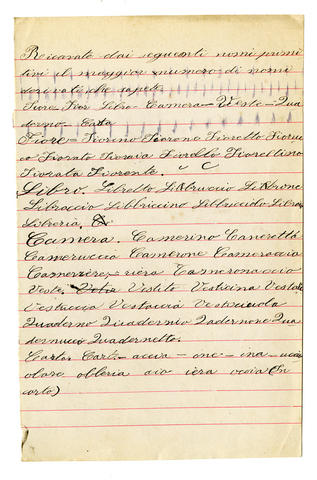 Ricavate dai seguenti nomi primi
tivi il maggior numero di nomi
derivati che sapete.
Fiore Fior Libro Camera Veste Qua
derno Carta
Fiore Fiorino Fiorone Fioretto
Fiorato Fioraia Fiorello Fiorellino
Fiorata Fiorente.
Libro. Libretto Libbruccio Librone
Libraccio Libbriccino Libbricciolo
Libreria.
Camera. Camerino Cameretta
Cameruccia Camerone Cameraccia
Cameriere riera Cameronaccio
Veste. Vestito Vesticina Vestata
Vestuccia Vestaccia Vesticciuola
Quaderno Quadernio Qadernone Qua
dernuccio Quadernetto.
Carta Cart accia one ina uccia
olare oleria aio iera (In
carto)